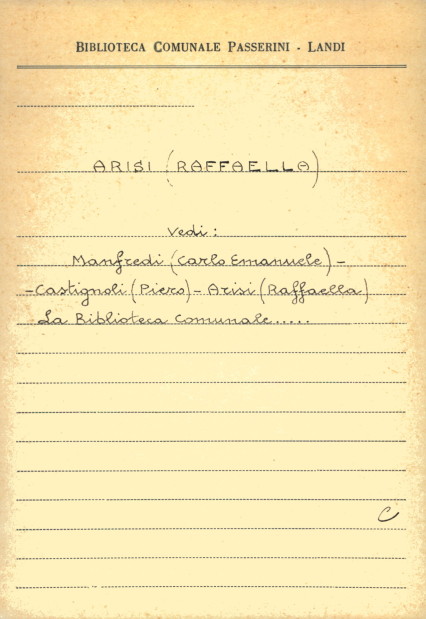 BIBLIOTECA COMUNALE PASSERINI - LANDI
ARISI (RAFFAELLA)
Vedi:
Manfredi (Carlo Emanuele) -
-Castignoli (Piero) - Arisi (Raffaella)
La Biblioteca Comunale.....
C